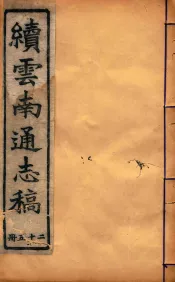 續雲南通志稿
二十五冊